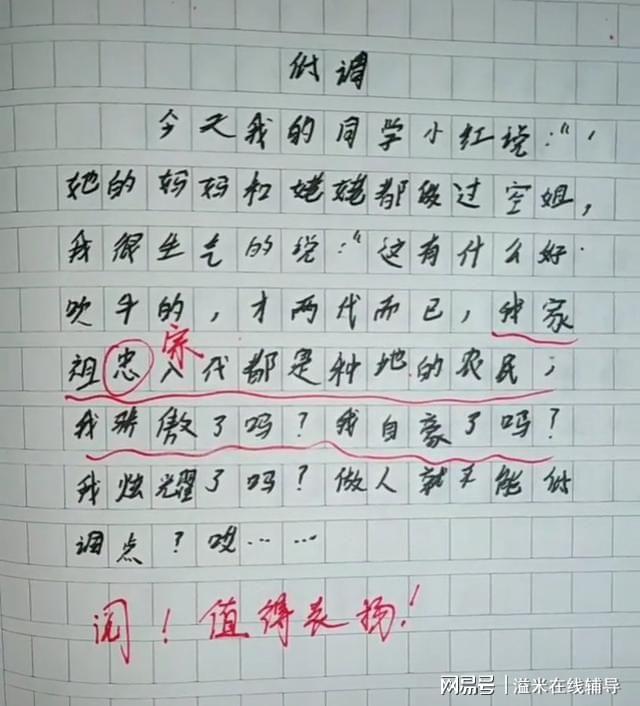 低调
今天我的同学小红说："，
她的妈妈和姥姥都做过空姐，
我很生气的说："这有什么好
吹牛的，才两代而已，我家
宗
祖忠八代都是种地的农民，
我骄傲了吗？我自豪了吗？
我炫耀了吗？做人就不能低
调点？哎……
阅！值得表扬！
网易号 | 溢米在线辅导